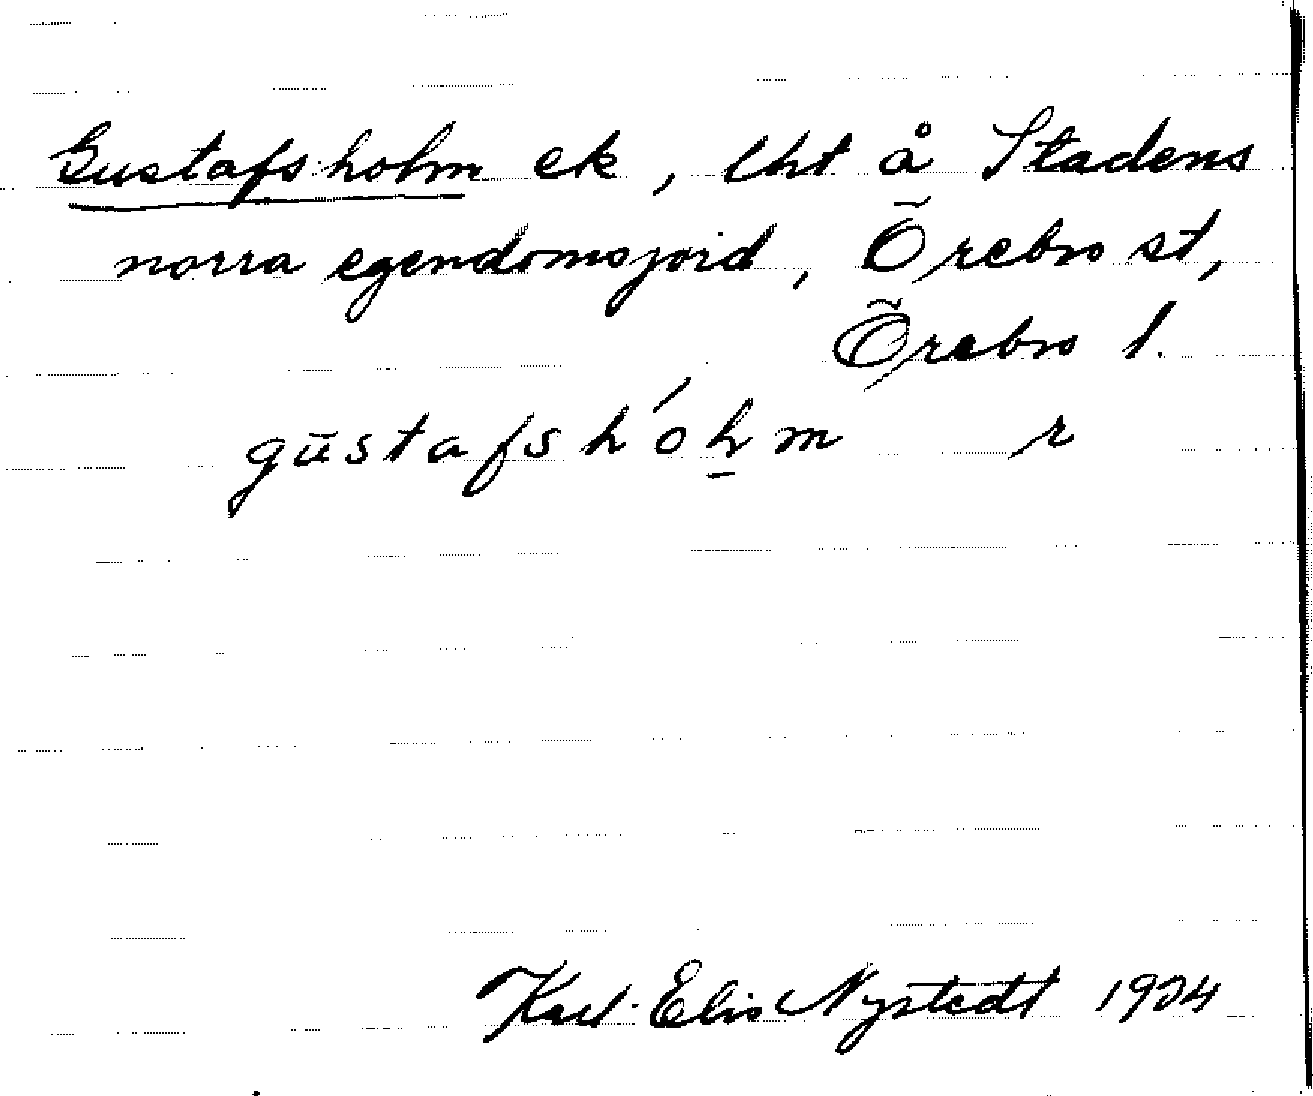 Gustafsholm ek, lht å Stadens
norra egendomsjord, Örebro st,
Örebro l.
gūstafshólm r
Karl-Elis Nystedt 1924